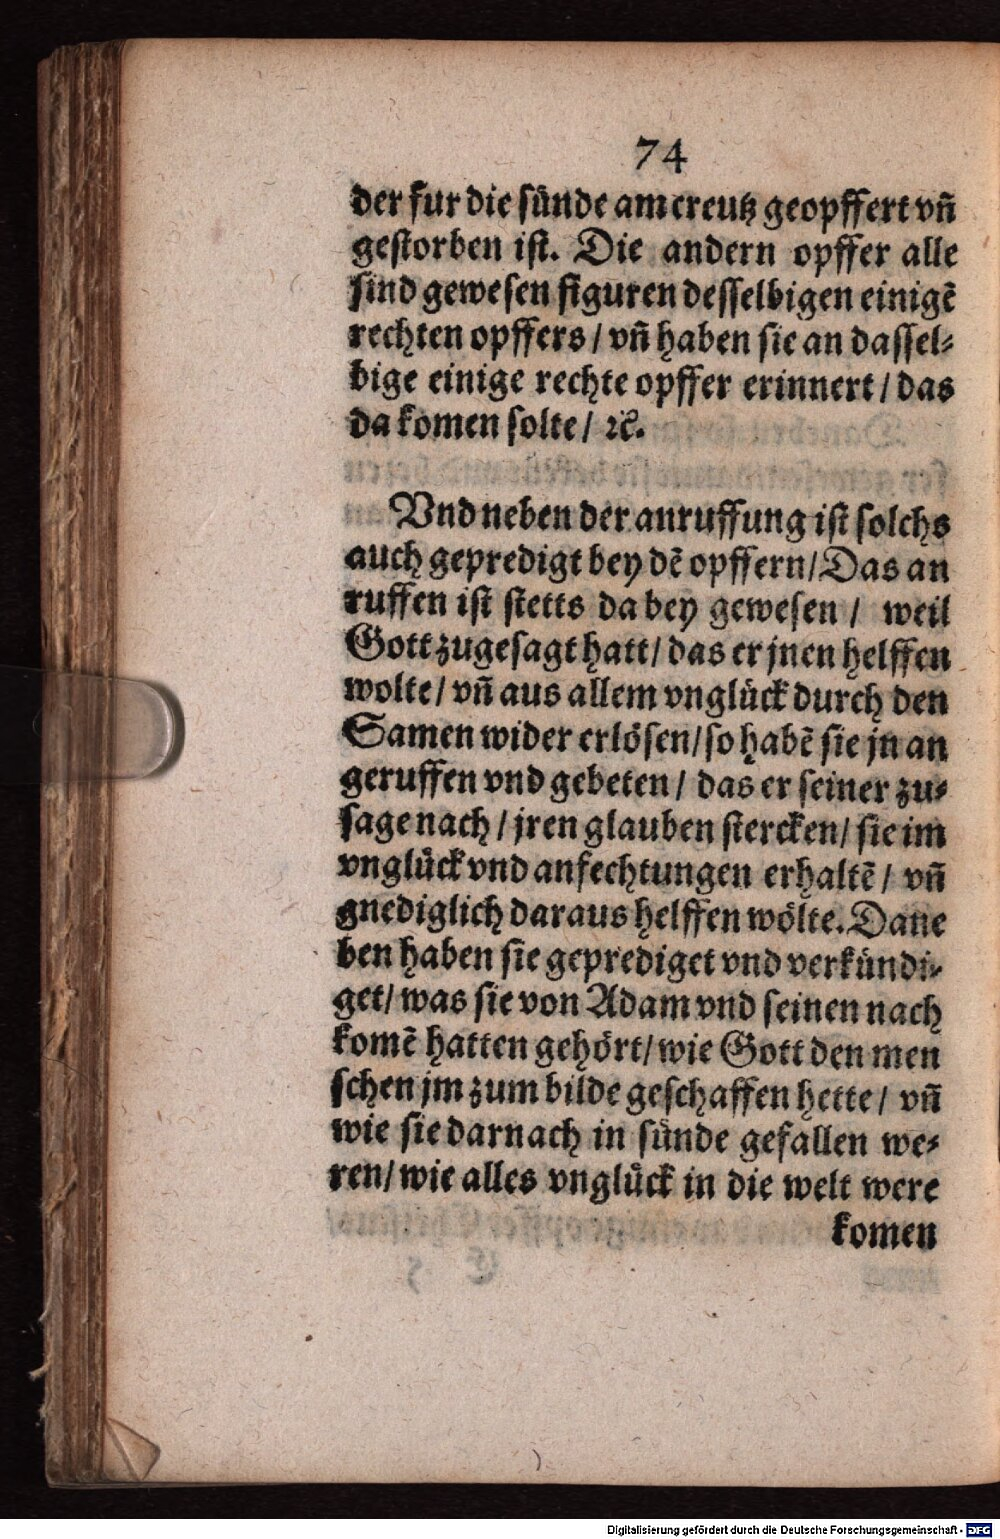 74
der fur die sünde am creutz geopffert vñ
gestorben ist. Die andern opffer alle
sind gewesen figuren desselbigen einigẽ
rechten opffers / vñ haben sie an dassel-
bige einige rechte opffer erinnert / das
da komen solte / ꝛc.
Vnd neben der anruffung ist solchs
auch gepredigt bey dẽ opffern / Das an
ruffen ist stetts da bey gewesen / weil
Gott zugesagt hatt / das er jnen helffen
wolte / vñ aus allem vnglück durch den
Samen wider erlösen / so habẽ sie jn an
geruffen vnd gebeten / das er seiner zu-
sage nach / jren glauben stercken / sie im
vnglück vnd anfechtungen erhaltẽ / vñ
gnediglich daraus helffen wölte. Dane
ben haben sie geprediget vnd verkündi-
get / was sie von Adam vnd seinen nach
komẽ hatten gehört / wie Gott den men
schen jm zum bilde geschaffen hette / vñ
wie sie darnach in sünde gefallen we-
ren / wie alles vnglück in die welt were
komen
Digitalisierung gefördert durch die Deutsche Forschungsgemeinschaft - DFG